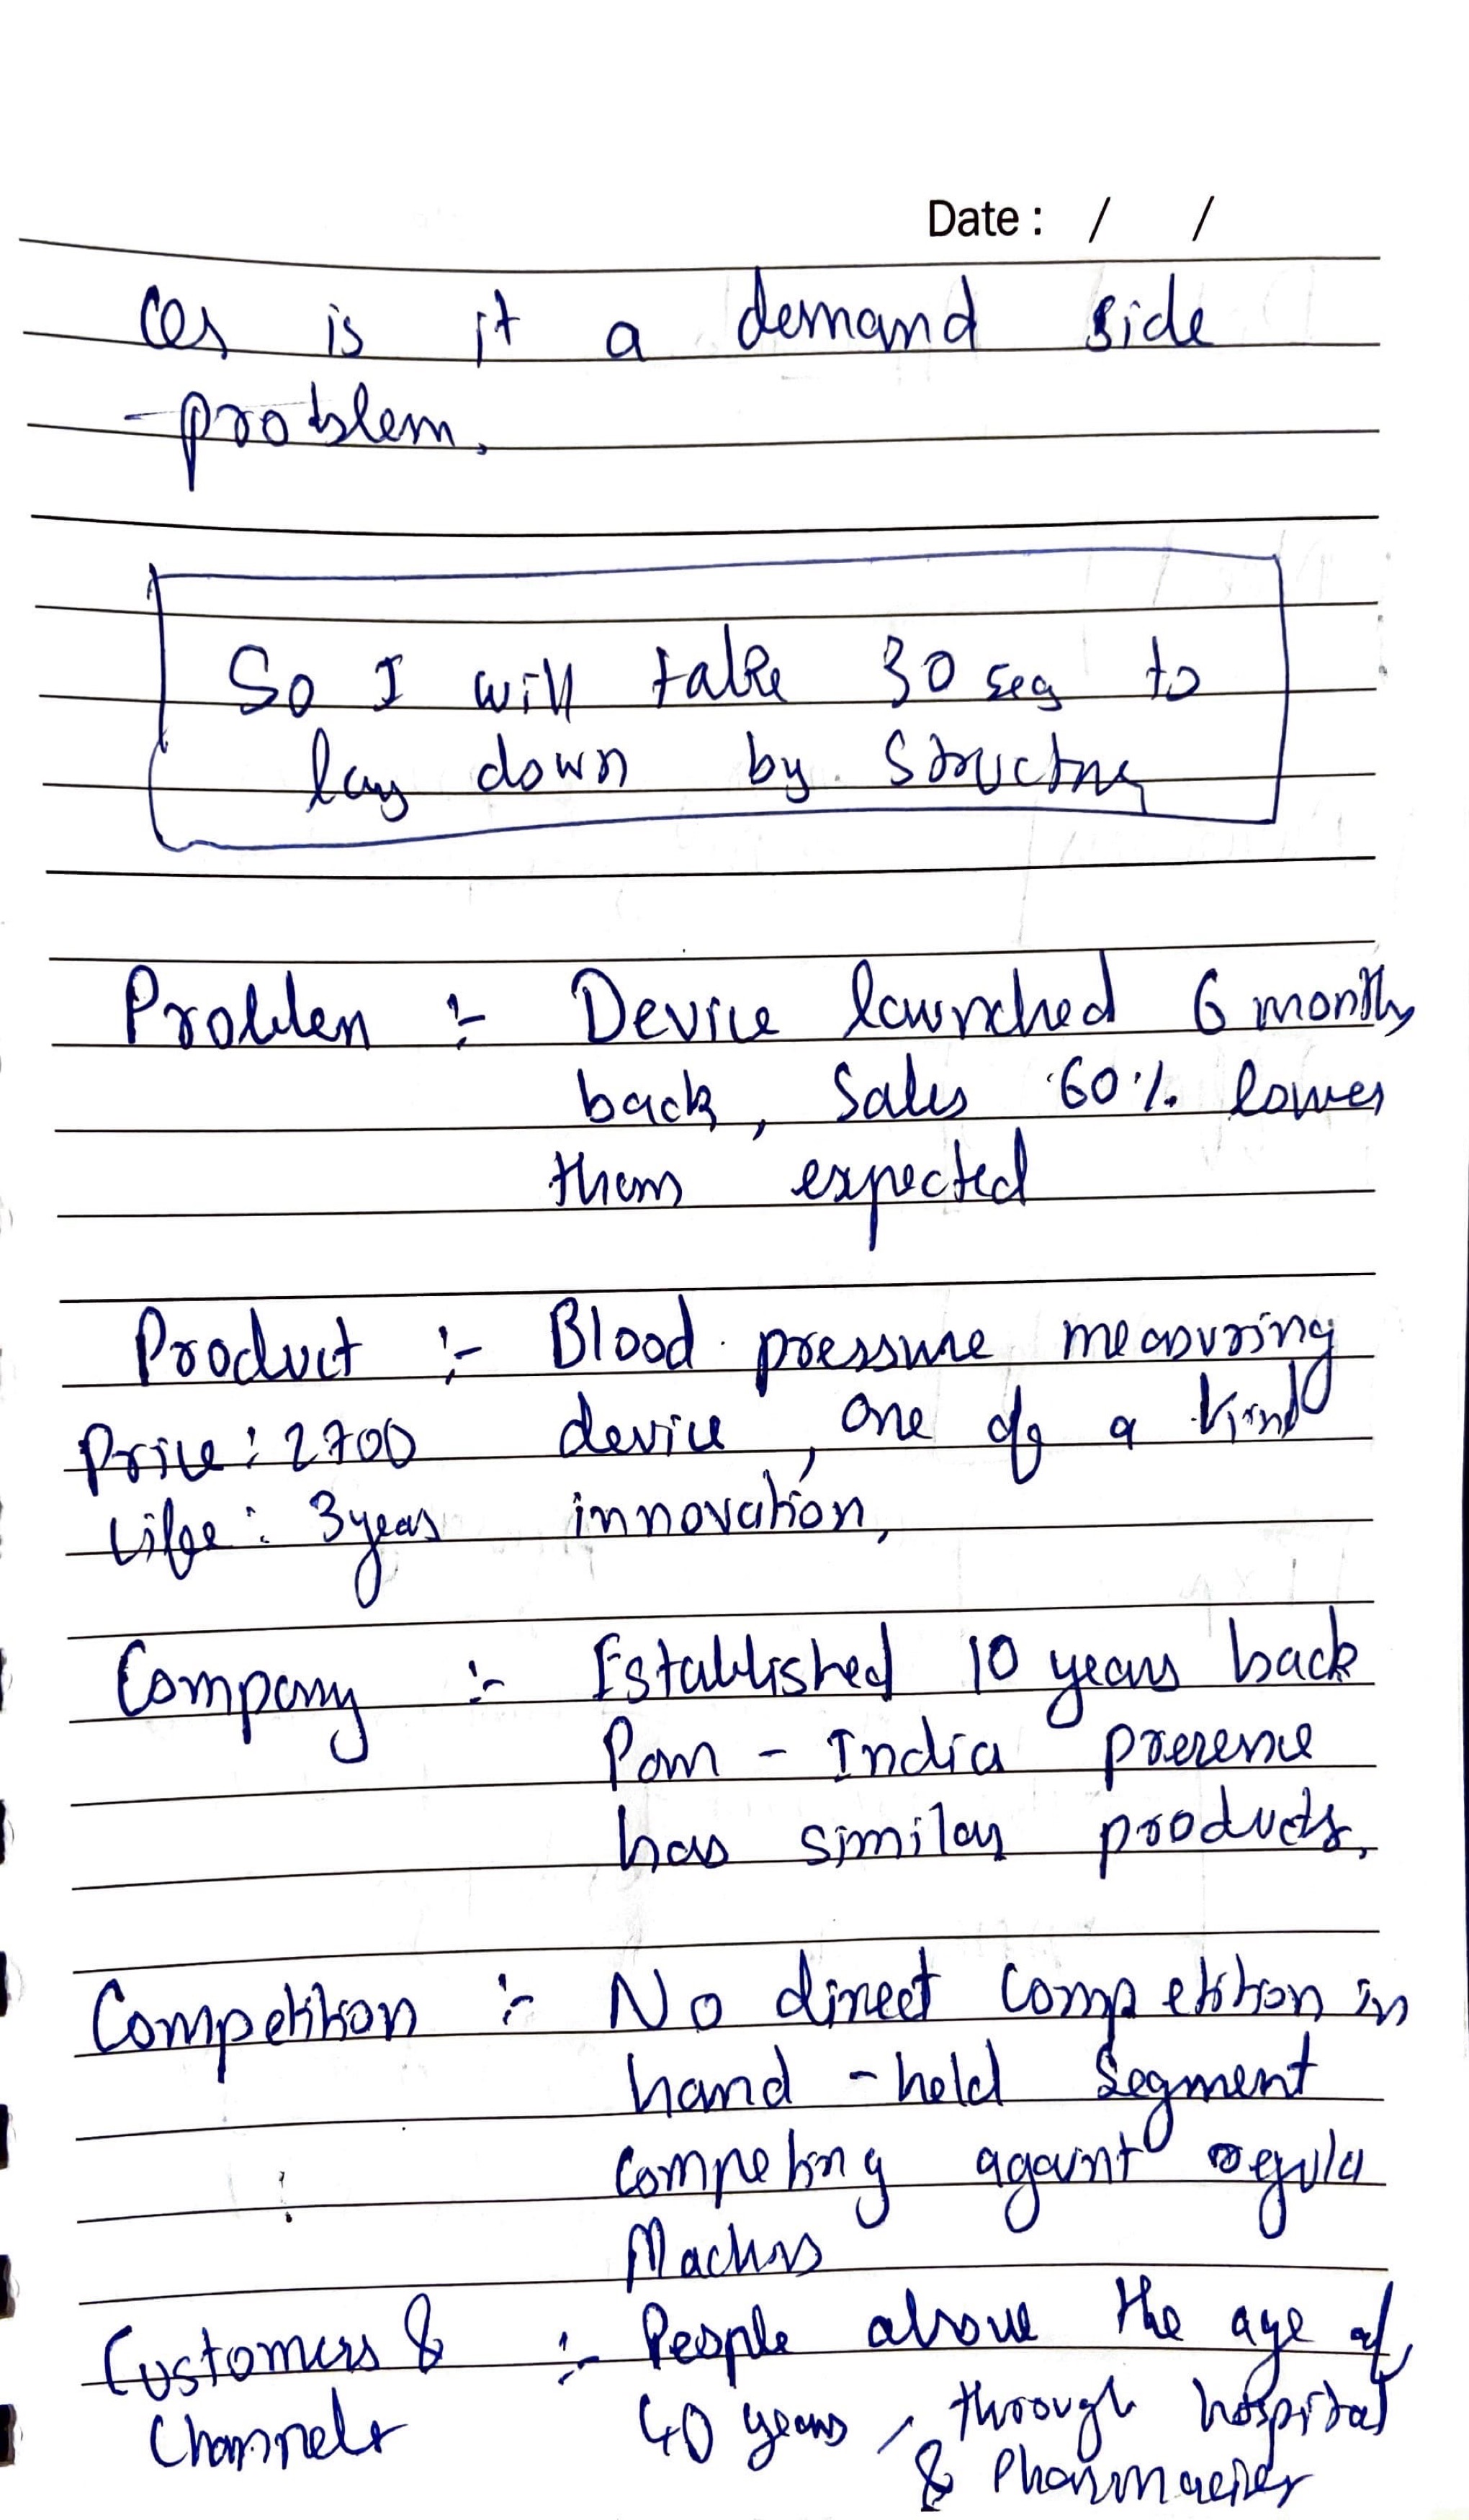 Date : / /
is it a demand side
problem.
So I will take 30 seg to
lay down by Structure
Problem :- Device launched 6 months
back, Sales 60% lower
than expected
Product :- Blood pressure measuring
Price : 2700 device, one of a kind
Life : 3 years innovation,
Company :- Established 10 years back
Pan - India presence
has similar products.
Competition :- No direct competition in
hand - held Segment
competing against regular
Machines
Customers & :- People above the age of
Channels 40 years, through hospital
& Pharmacies